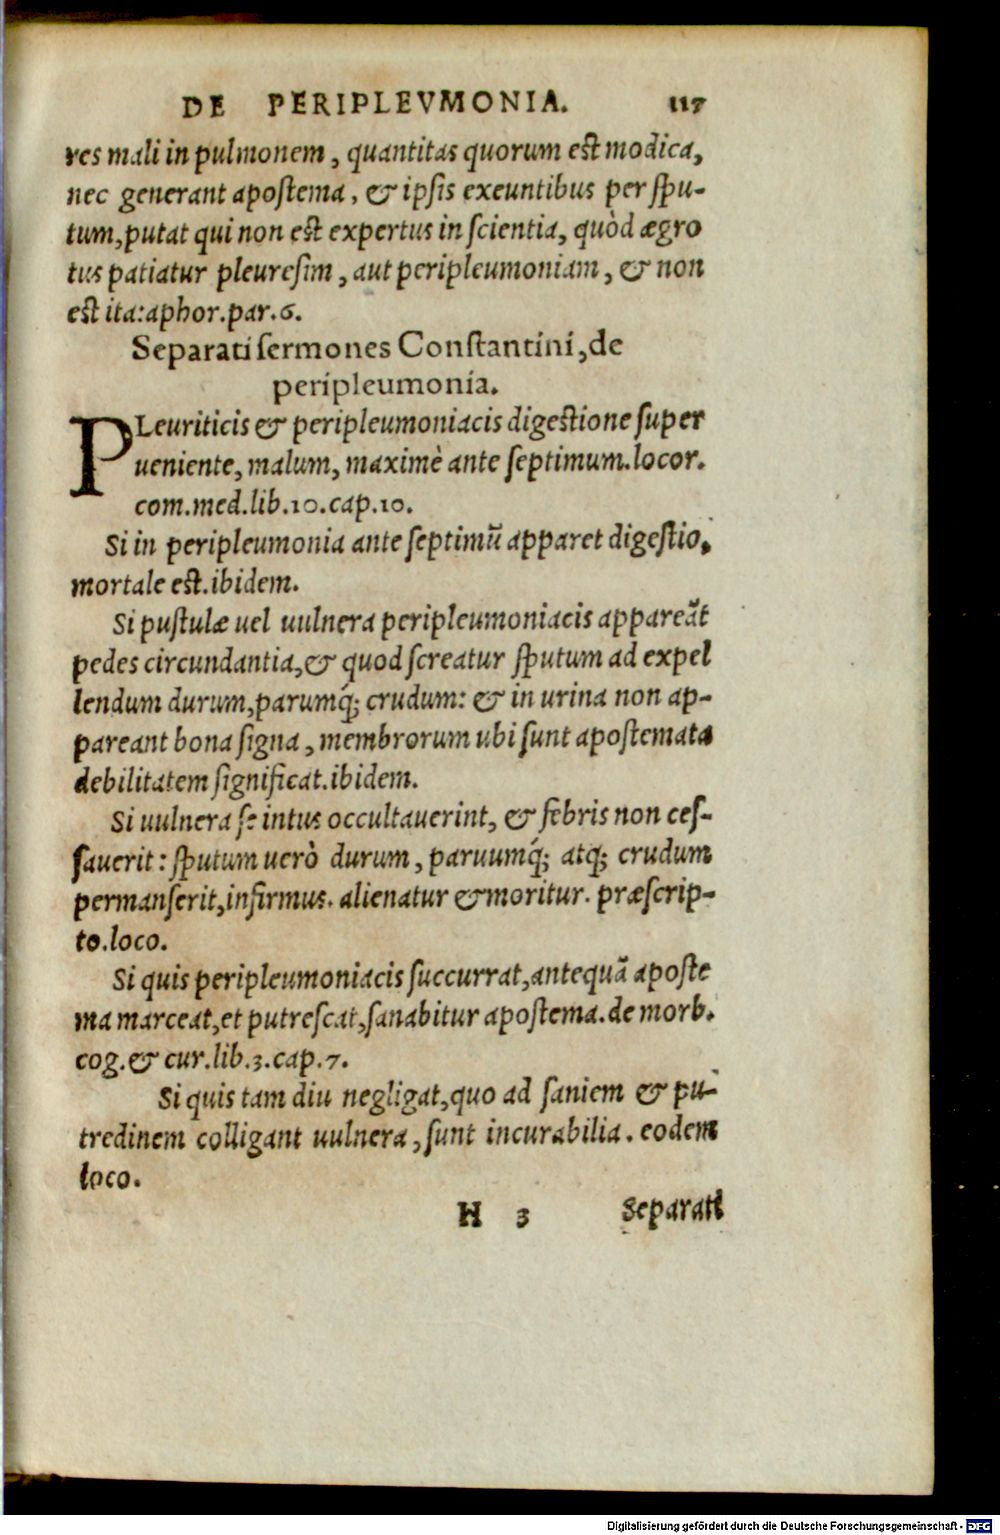 DE PERIPLEVMONIA. 117
res mali in pulmonem, quantitas quorum est modica,
nec generant apostema, & ipsis exeuntibus per spu-
tum, putat qui non est expertus in scientia, quòd ægro
tus patiatur pleuresim, aut peripleumoniam, & non
est ita: aphor. par. 6.
Separati sermones Constantini, de
peripleumonia.
PLeuriticis & peripleumoniacis digestione super
ueniente, malum, maximè ante septimum. locor.
com. med. lib. 10. cap. 10.
Si in peripleumonia ante septimũ apparet digestio,
mortale est. ibidem.
Si pustulæ uel uulnera peripleumoniacis appareãt
pedes circundantia, & quod screatur sputum ad expel
lendum durum, parumq́; crudum: & in urina non ap-
pareant bona signa, membrorum ubi sunt apostemata
debilitatem significat. ibidem.
Si uulnera se intus occultauerint, & febris non ces-
sauerit: sputum uerò durum, paruumq́; atq́; crudum
permanserit, infirmus. alienatur & moritur. præscrip-
to. loco.
Si quis peripleumoniacis succurrat, antequã aposte
ma marceat, et putrescat, sanabitur apostema. de morb.
cog. & cur. lib. 3. cap. 7.
Si quis tam diu negligat, quo ad saniem & pu-
tredinem colligant uulnera, sunt incurabilia. eodem
loco.
H 3 Separati
Digitalisierung gefördert durch die Deutsche Forschungsgemeinschaft - DFG